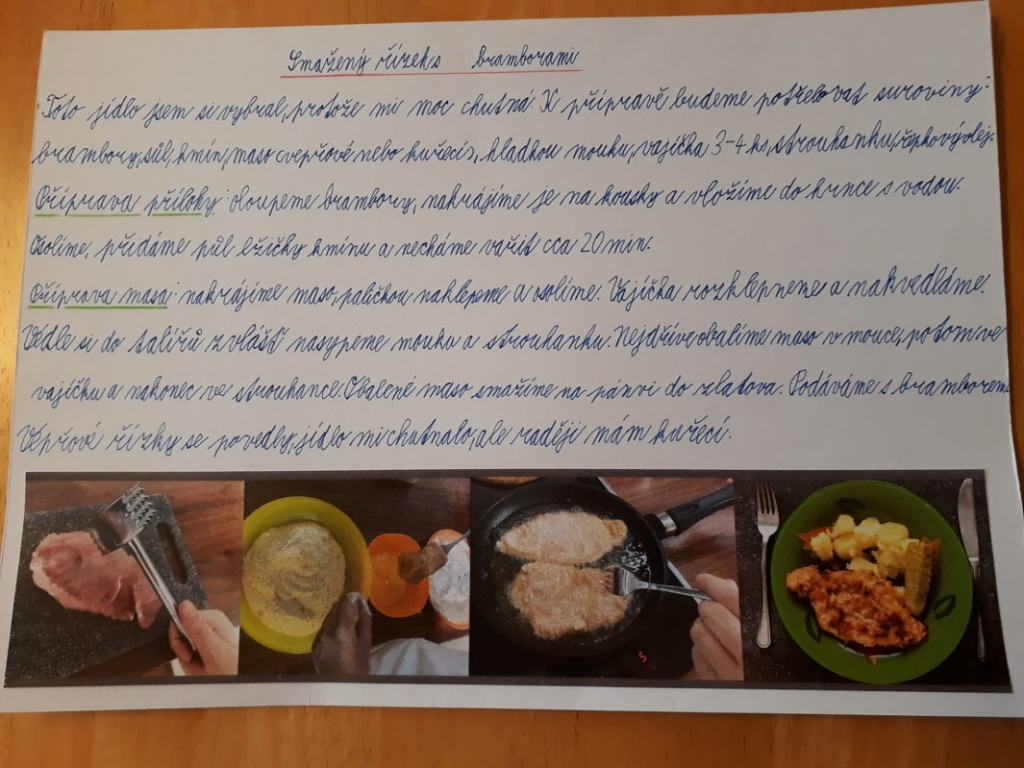 Smažený řízek s bramborami
Toto jídlo jsem si vybral, protože mi moc chutná. K přípravě budeme potřebovat suroviny:
brambory, sůl, kmín, maso (vepřové nebo kuřecí), hladkou mouku, vajíčka 3-4 ks, strouhanku, řepkový olej.
Příprava přílohy: oloupeme brambory, nakrájíme je na kousky a vložíme do hrnce s vodou.
Osolíme, přidáme půl lžičky kmínu a necháme vařit cca 20 min.
Příprava masa: nakrájíme maso, paličkou naklepeme a osolíme. Vajíčka rozklepneme a nakvedláme.
Vedle si do talířů zvlášť nasypeme mouku a strouhanku. Nejdříve obalíme maso v mouce, potom ve
vajíčku a nakonec ve strouhance. Obalené maso smažíme na pánvi do zlatova. Podáváme s bramborem.
Vepřové řízky se povedly, jídlo mi chutnalo, ale raději mám kuřecí.